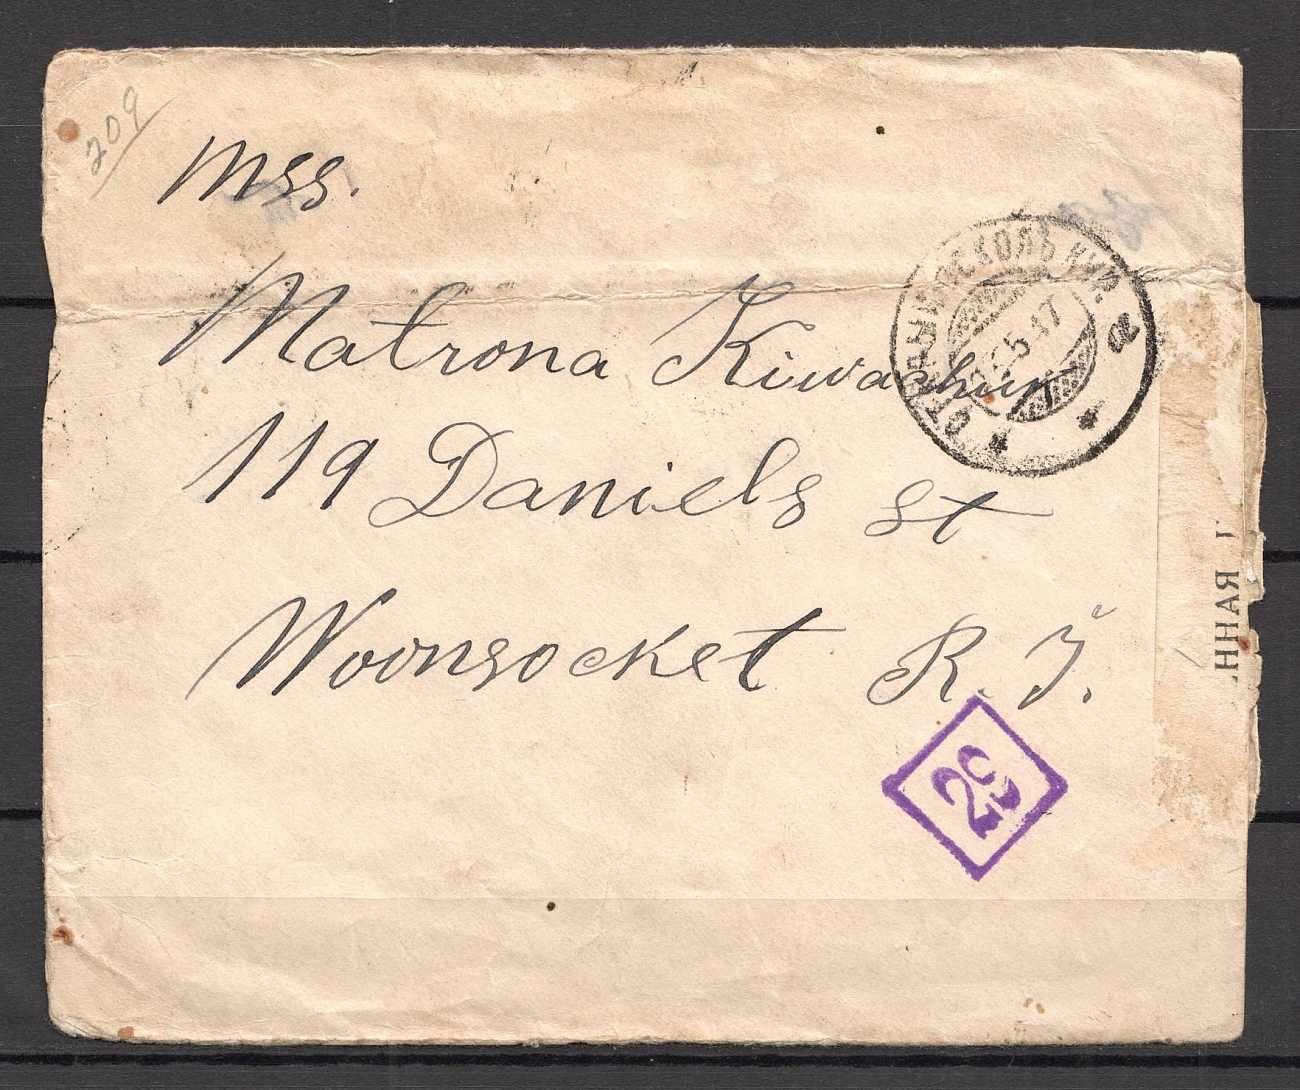 209
Mss.
Matrona Kiwachuk
119 Daniels st
Woonsocket R. I.
29